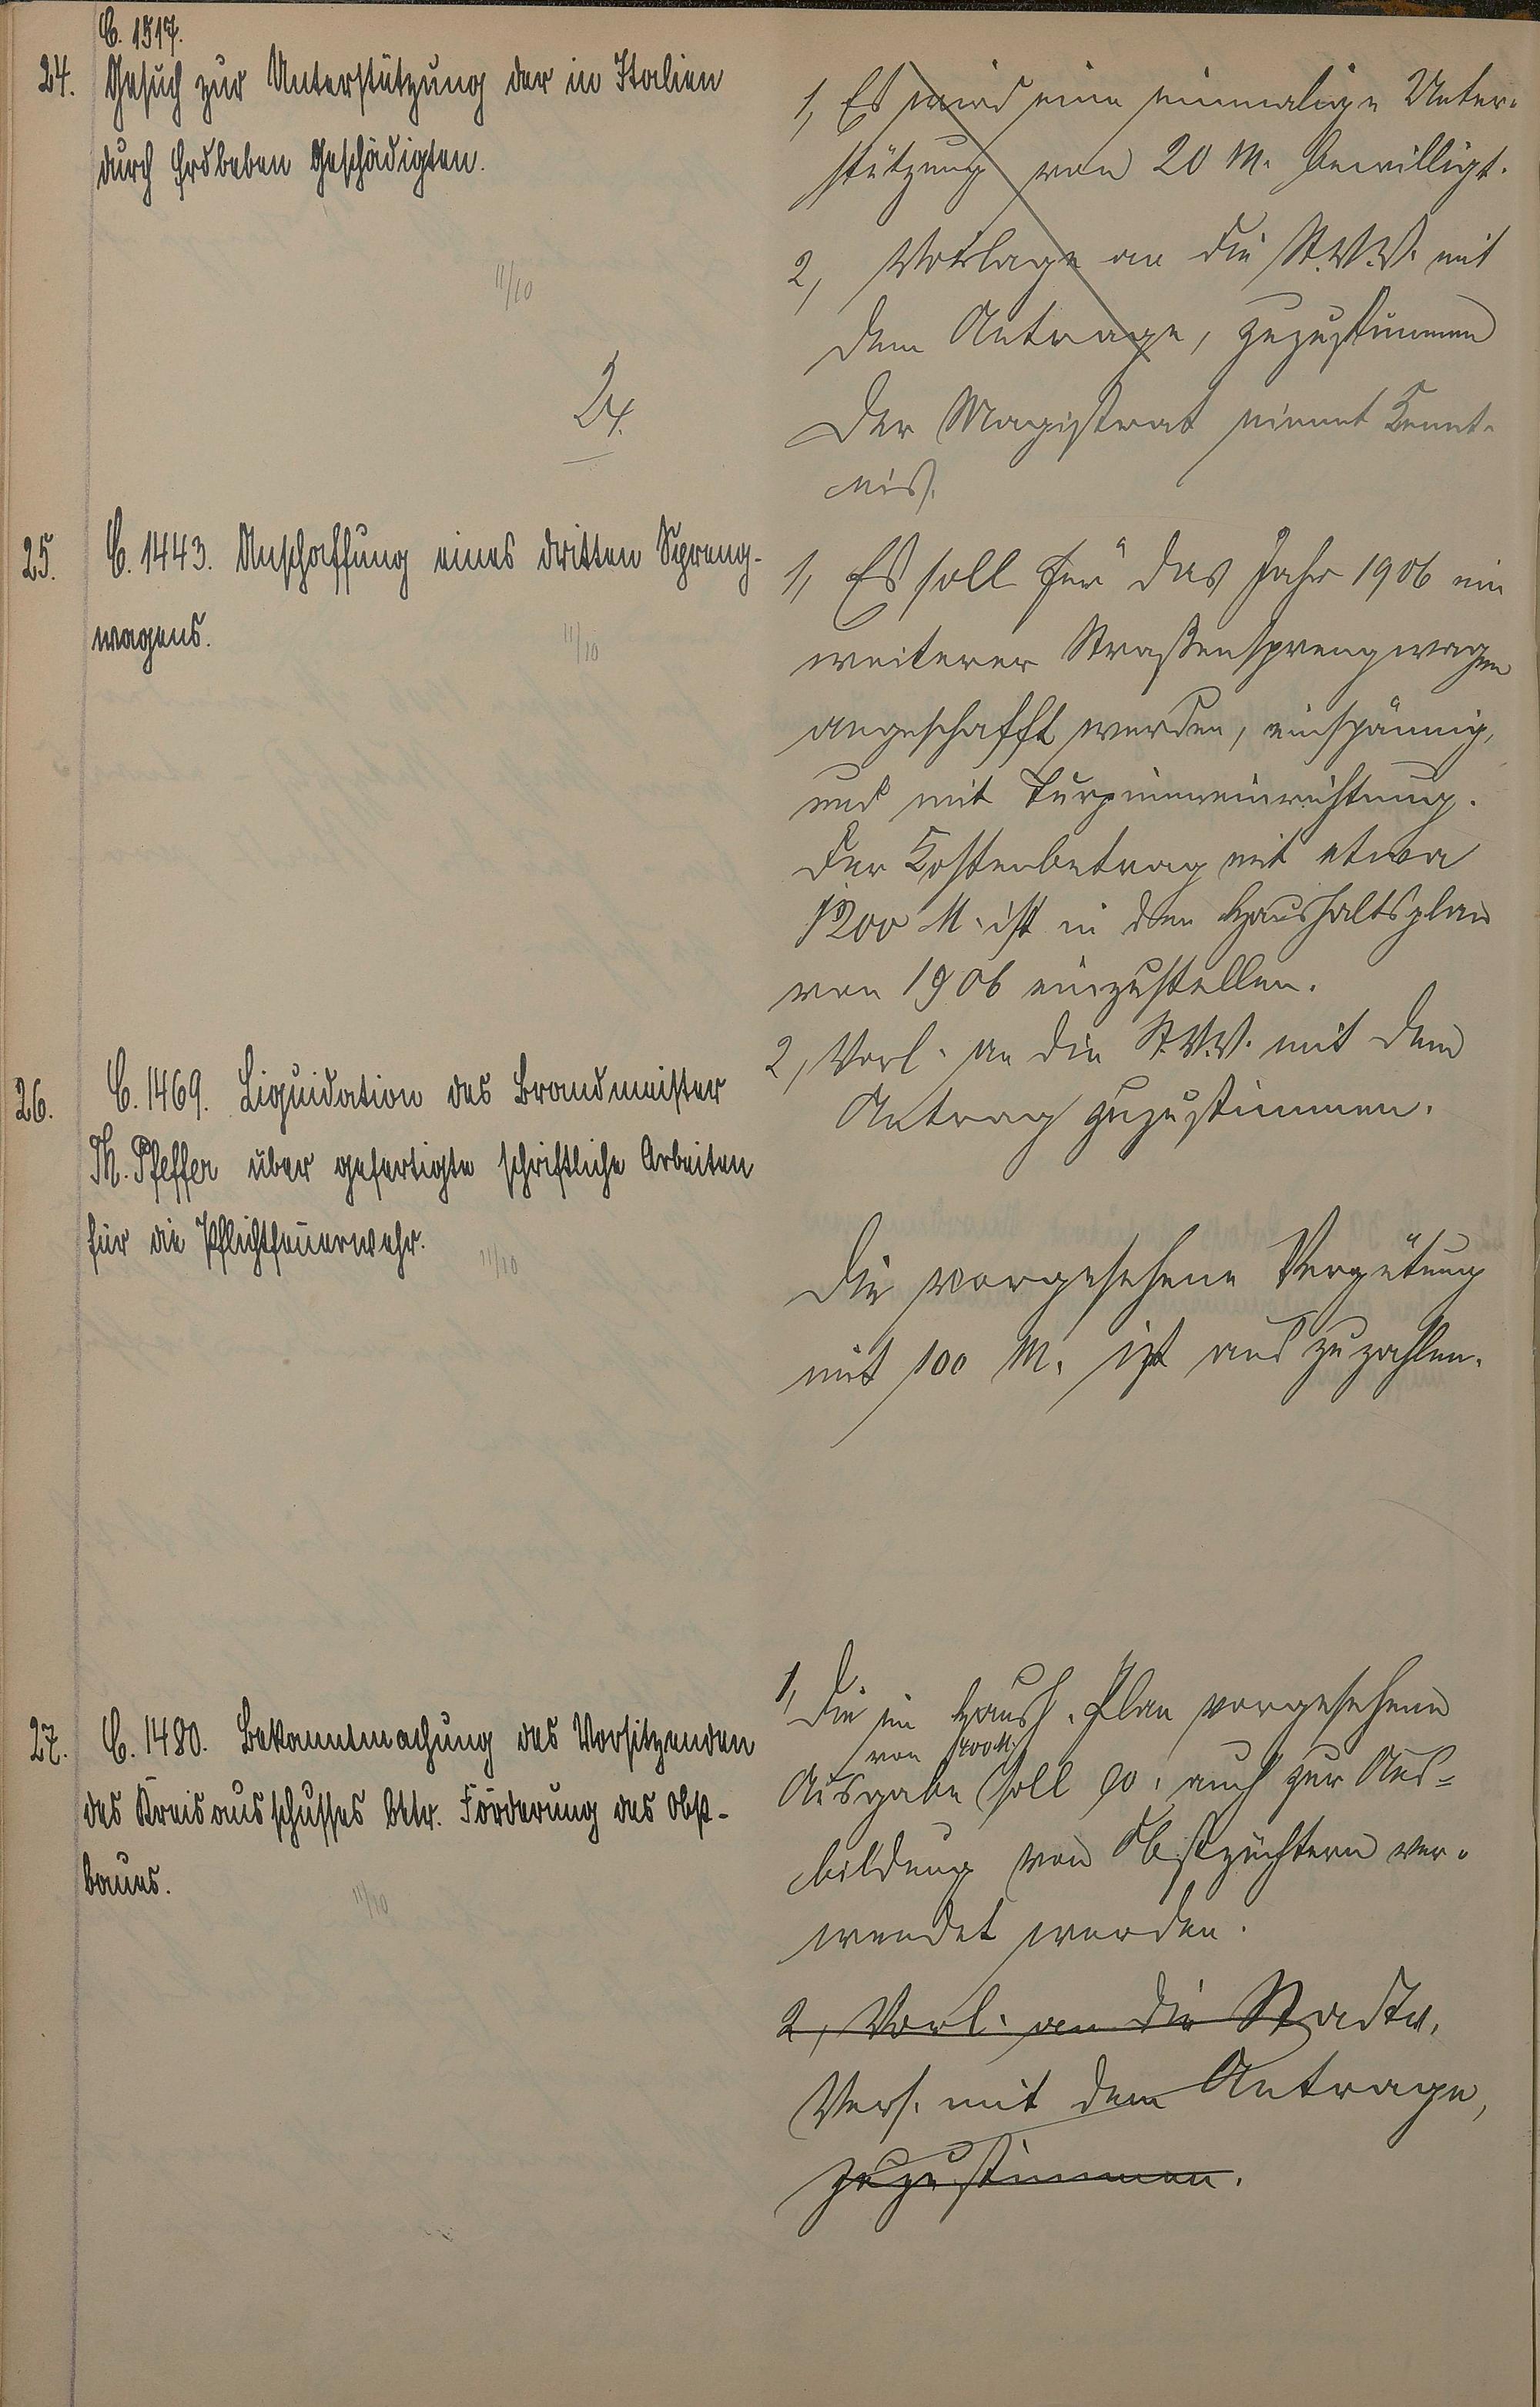 C. 1517.
24. Gesuch zur Unterstützung der in Italien
durch Erdbeben Geschädigten.
11/10
1, Es wird eine einmalige Unter-
stützung von 20 M. bewilligt.
2, Vorlage an die St.V.V. mit
dem Antrage, zuzustimmen
Der Magistrat nimmt Kennt-
nis.
25. C. 1443. Anschaffung eines dritten Spreng-
wagens.
11/10
1, Es soll für das Jahr 1906 ein
weiterer Straßensprengwagen
angeschafft werden, einspännig,
und mit Turbineneinrichtung.
Der Kostenbetrag mit etwa
1200 M. ist in den Haushaltsplan
von 1906 einzustellen.
2, Vorl. an die St.V.V. mit dem
Antrag zuzustimmen.
26. C. 1469. Liquidation des Brandmeister
Th. Pfeffer über gefertigte schriftliche Arbeiten
für die Pflichtfeuerwehr.
11/10
Die vorgesehene Vergütung
mit 100 M. ist auszuzahlen.
27. C. 1480. Bekanntmachung des Vorsitzenden
des Kreisausschusses betr. Förderung des Obst-
baues.
11/10
1, Die im Haush. Plan vorgesehene
Ausgabe von 400 M. soll auch zur Aus-
bildung von Obstzüchtern ver-
wendet werden.
2, Vorl. an die Stadtv.
Vers. mit dem Antrage,
zuzustimmen.